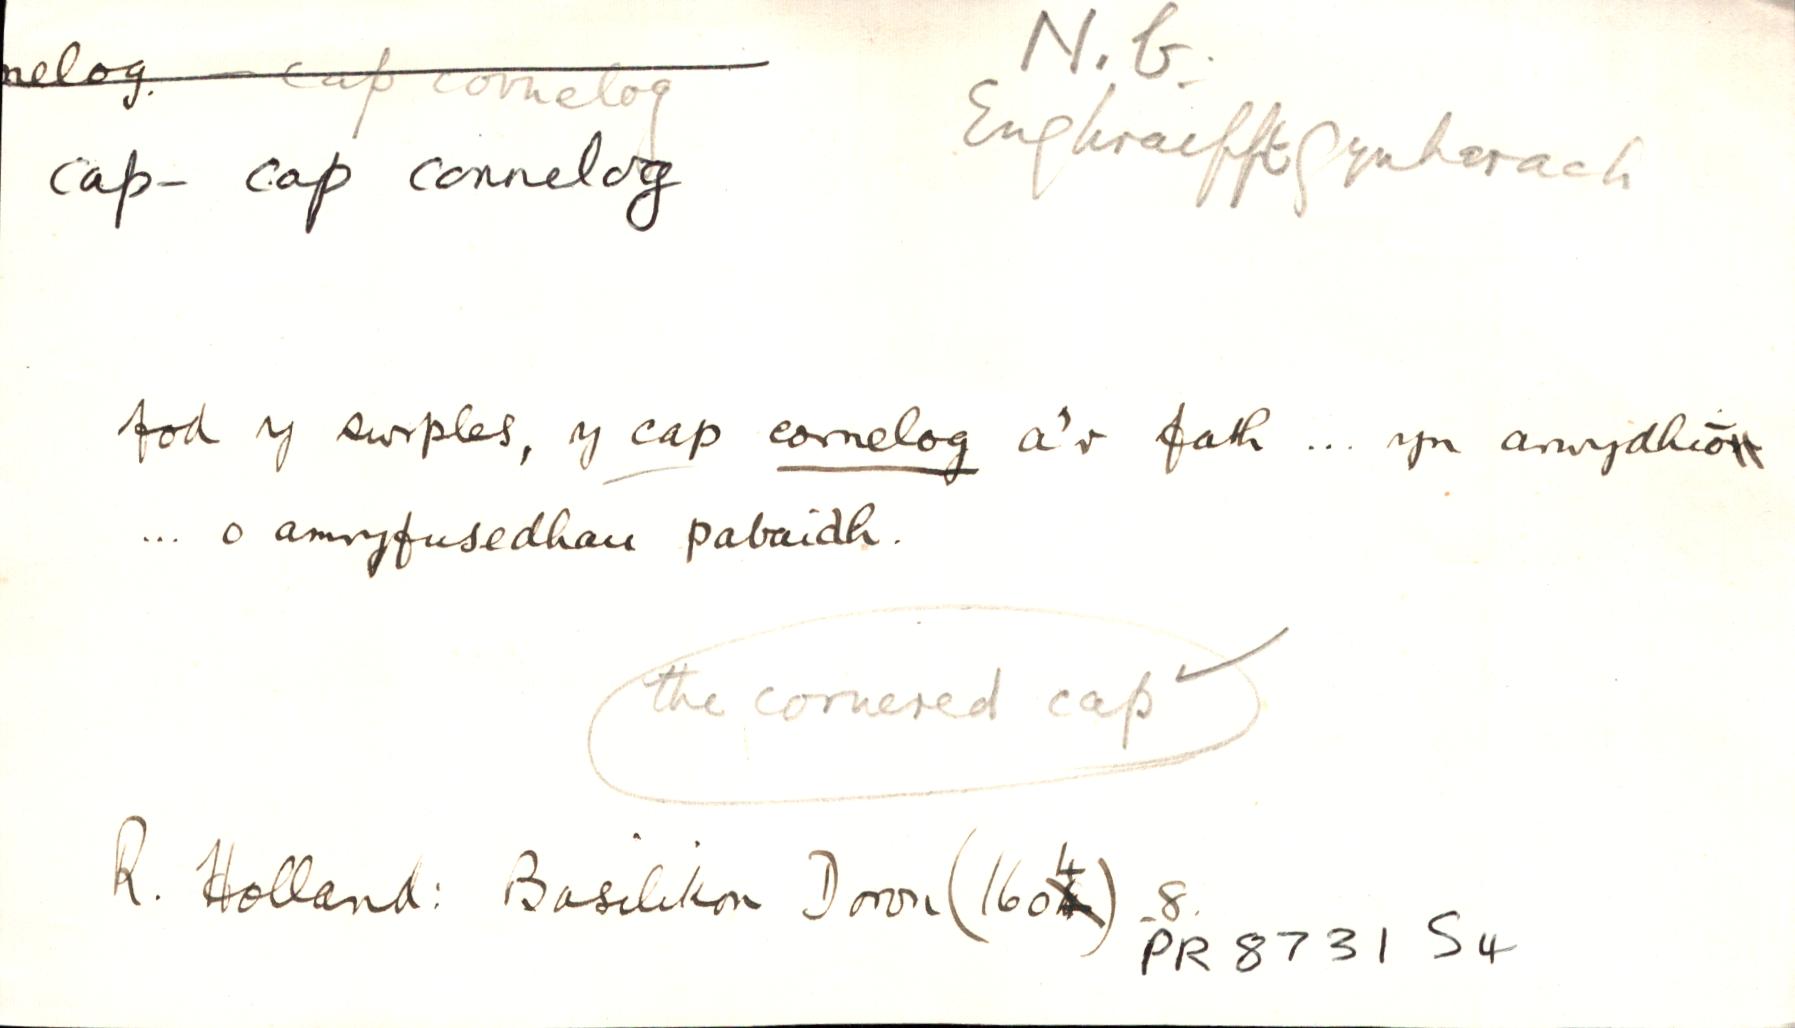 nelog. - cap cornelog
N.b.
Enghraifft gynharach
cap- cap cornelog
fod y surples, y cap cornelog a'r fath ... yn arwydhion
... o amryfusedhau pabaidh.
the cornered cap ✓
R. Holland: Basilikon Doron (1604) 8.
PR 8731 S4